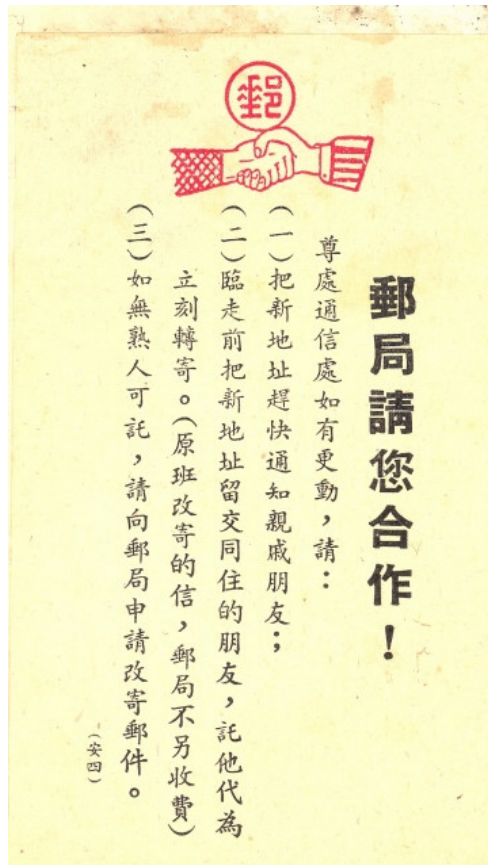 郵
郵局請您合作！
尊處通信處如有更動，請：
（一）把新地址趕快通知親戚朋友；
（二）臨走前把新地址留交同住的朋友，託他代為
立刻轉寄。（原班改寄的信，郵局不另收費）
（三）如無熟人可託，請向郵局申請改寄郵件。
（安四）